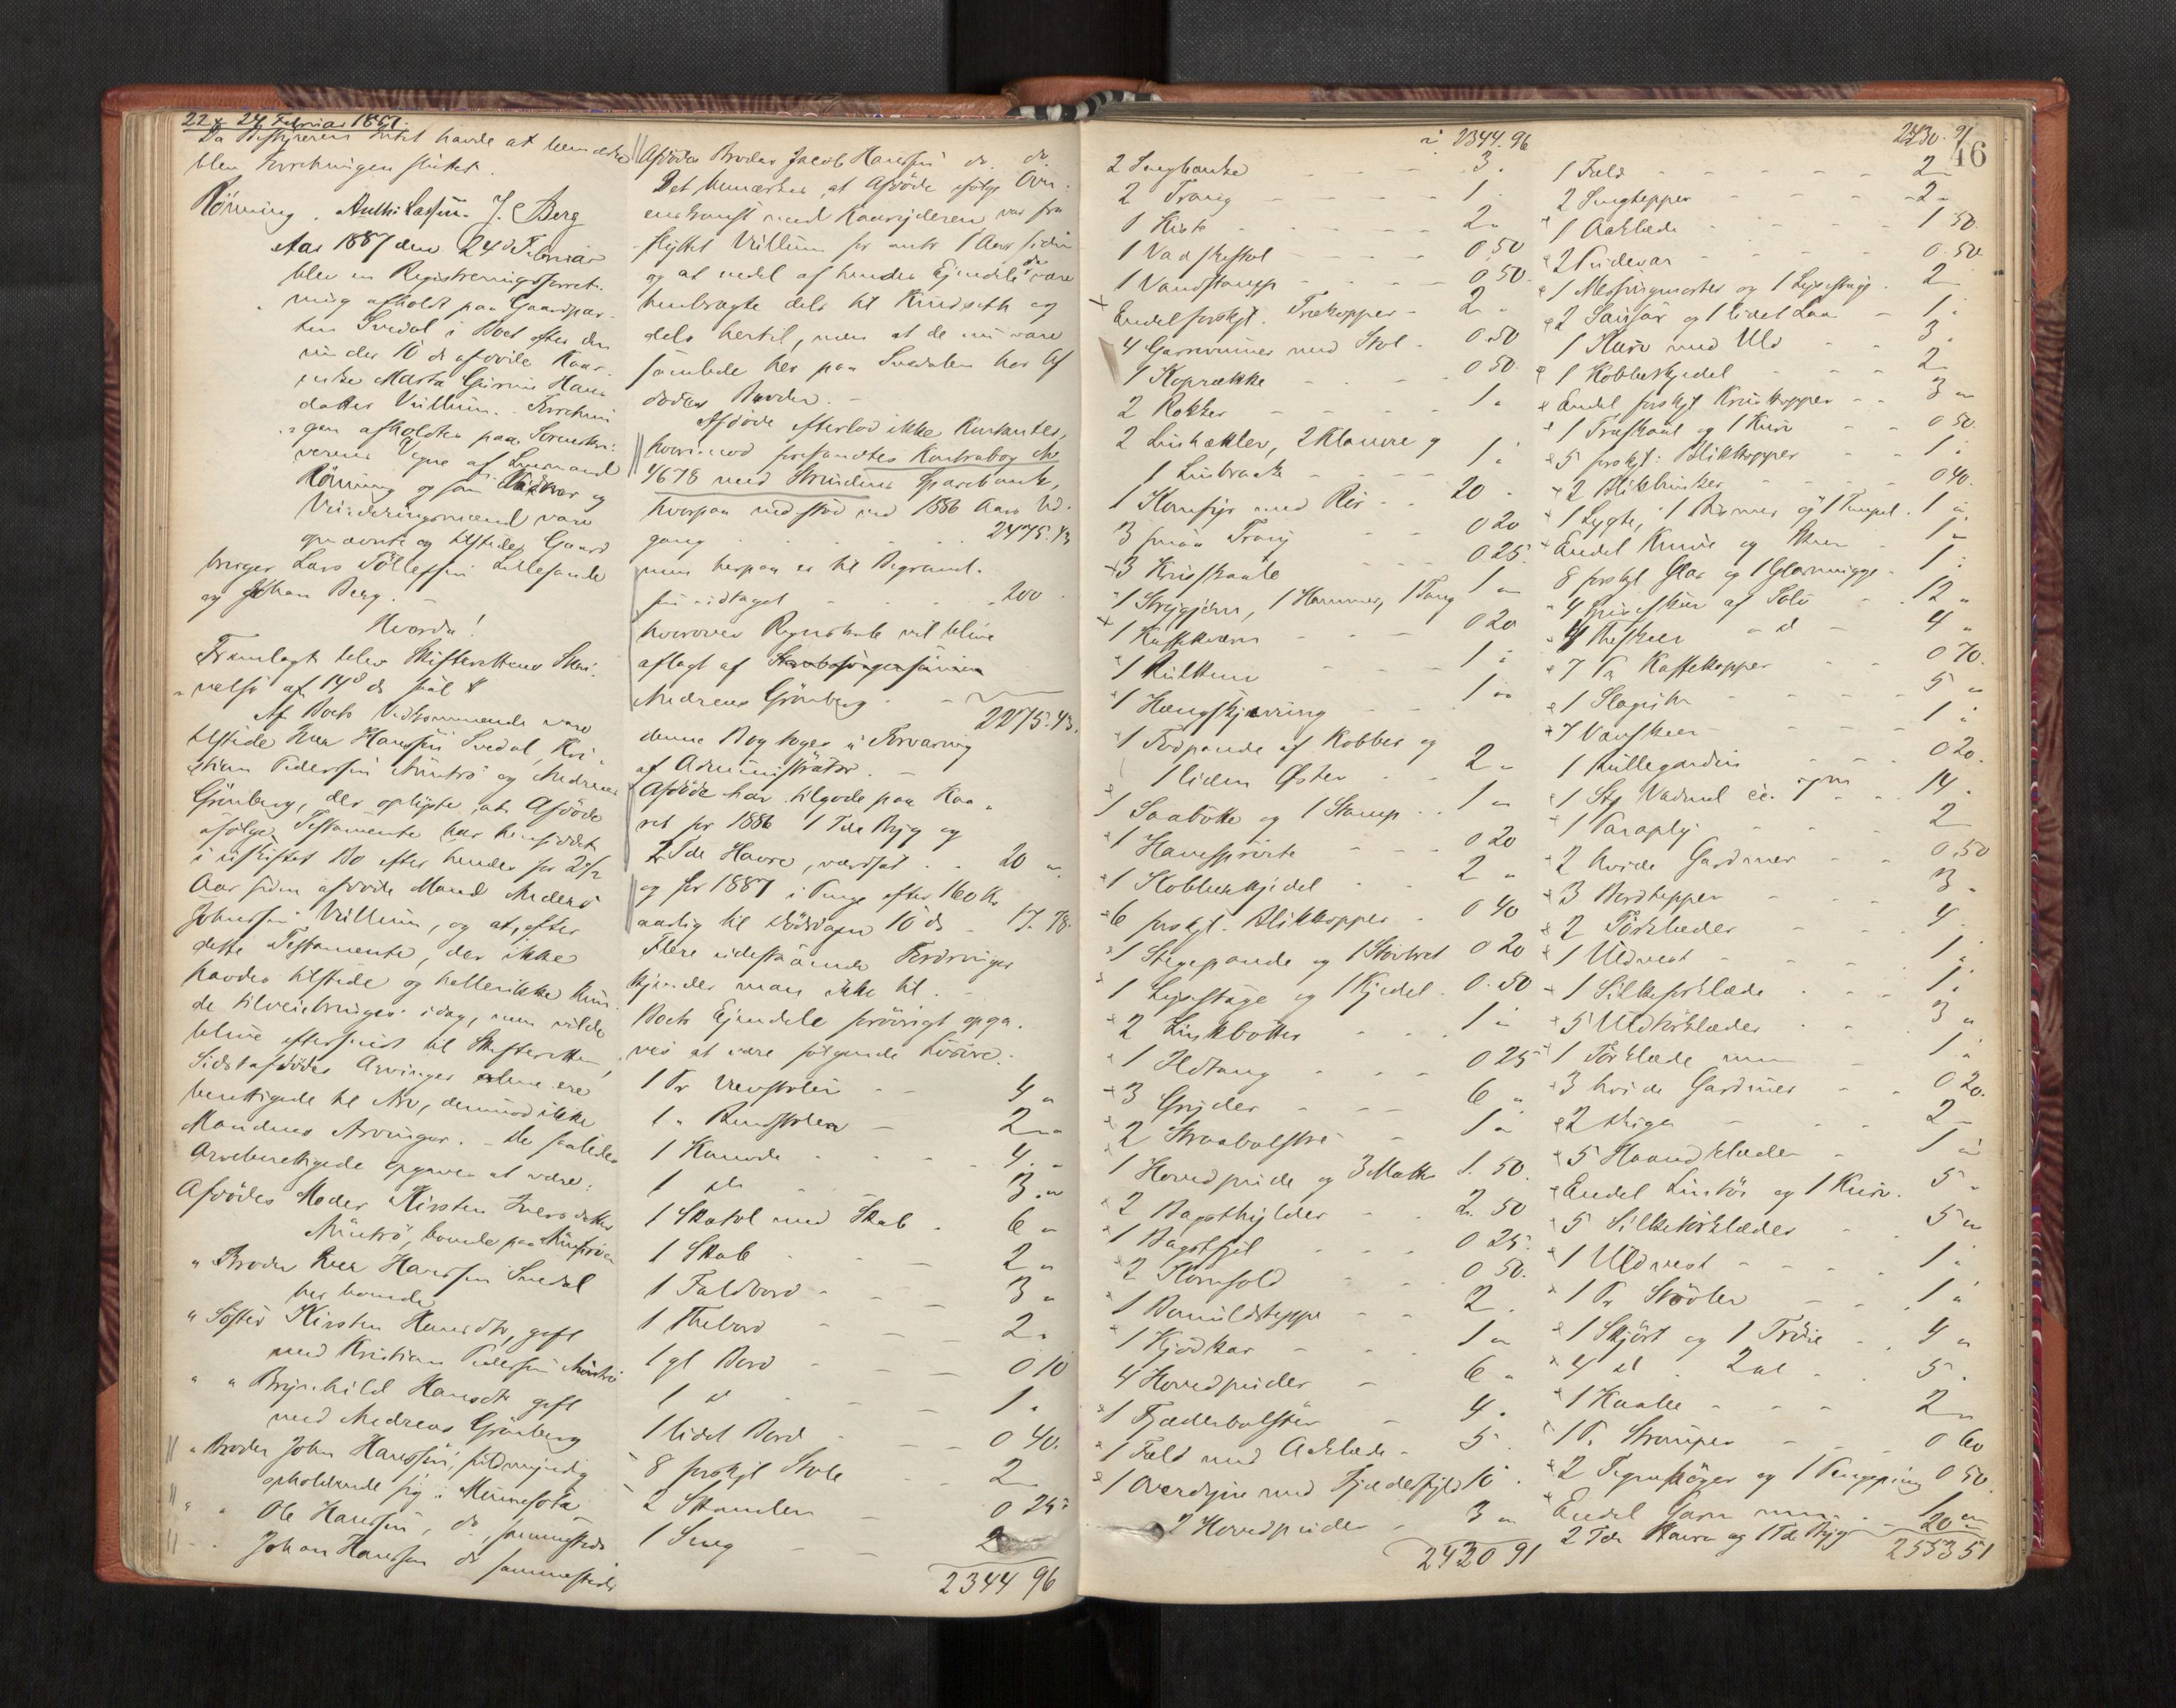 22 & 24 Februar 1887.
Da Bestyreren Intet havde at bemærke
blev Forretningen sluttet.
Rönning. Anth: Lassen. J. Berg
Aar 1887 den 24de Februar
blev en Registreringsforret-
ning afholdt paa Gaardpar-
ten Svedal i Boet efter den
under 10 ds afdöde Kaar-
enke Marta Hans
datter Vullum. Forretnin
gen afholdtes paa Sorenskri-
verens Vegne af Lensmand
Rönning og som Vidner og
Vurderingsmænd vare
opnævnte og tilstede Gaard
bruger Lars Töllefsen Lillesande
og Johan Berg.
Hvorda!
Fremlagt blev Skifterettens Skri-
velse af 14de ds saal
Af Boets Vedkommende vare
tilstede Iver Hanssen Svedal, Kri-
stian Pedersen Muntrö og Andreas
Grönberg, der oplyste at Afdöde
ifölge Testamente har hensiddet
i uskiftet Bo efter hendes for 2 1/2
Aar siden afdöde Mand Anders
Johnsen Vullum, og at, efter
dette Testamente, der ikke
havdes tilstede og hellerikke kun-
de tilveiebringes idag, men vilde
blive eftersendt til Skifteretten,
Sidstafdödes Arvinger alene ere
berettigede til Arv, derimod ikke
Mandens Arvinger. - De saaledes
Arveberettigede opgaves at være:
Afdödes Moder Kirsten Iversdatter
Muntrö, boende paa Muntröen
" Broder Iver Hanssen Svedal
her boende
" Söster Kirsten Hansdtr, gift
med Kristian Pedersen Muntrö
" " Brynhild Hansdtr gift
med Andreas Grönberg
" Broder John Hanssen, fuldmyndig
opholdende sig i Minnesota
" " Ole Hanssen, do, sammesteds
" " Johan Hanssen do sammesteds
Afdödes Broder Jacob Hanssen do. do.
Det bemærkes, at Afdöde ifölge Over-
enskomst med Kaaryderen var fra
flyttet Vullum for omtr 1 Aar siden
og at endel af hendes Eiendele da vare
henbragte dels til Kindseth og
dels hertil, men at de nu vare
samlede her paa Svedalen hos Af
dödes Broder. -
Afdöde efterlod ikke Kontanter,
hvorimod foresandtes Kontrabog No
4678 med Strindens Sparebank,
hvorpaa indestod ved 1886 Aars Ud-
gang . . . . 2475.43
men herpaa er til Begravel-
sen udtaget . . . . 200.
hvorover Regnskab vil blive
aflagt af
Andreas Grönberg. - 2275.43.
denne Bog toges i Forvaring
af Administrator. -
Afdöde har tilgode paa Kaa-
ret for 1886 1 Tde Byg og
2 Tde Havre, værdsat . . 20 "
og for 1887 i Penge efter 160 Kr
aarlig til Dödsdagen 10 ds - 17.78.
Flere udestaaende Fordringer
kjender man ikke til. -
Boets Eiendele forövrigt opga-
ves at være fölgende Lösöre:
1 Pr Vævstolen - - 4 "
1 " Rendstolen - 2 "
1 Komode - - 4. "
1 do - 3. "
1 Skatol med Skab - 6 "
1 Skab - - 2 "
1 Foldbord - - 3 "
1 Thebord - - 2 "
1 gl Bord - - 0 10
1 d - - 1 "
1 lidet Bord - - 0 40.
8 forskjl Stole - 2
2 Skamler - 0 25
1 Seng - - 2
2344 96
i 2344.96
2 Sengbænke - - 3 "
2 Traug - - 1 "
1 Kiste - - 2 "
1 Vadskestol - - 0 50
1 Vandstamp - - 0 50.
Endel forskjl. Trækopper - 2 "
4 Garnvinner med Stol - 0.50
1 Koprække - - 0 50.
2 Rokker - - 1 "
2 Linhækler, 2 Klauve og
1 Linbraade - - 1 "
1 Komfyr med Rör - 20 "
3 smaa Traug - - 0 20
3 Krusskaale - - 0 25.
1 Strygejern, 1 Hammer, 1 Tang 1 "
1 Kaffekværn - - 0 20
1 - - 1 "
1 - - 1 "
1 Fodpande af Kobber og
1 liden Öster - 2 "
1 Saabötte og 1 Stamp - 1 "
1 - - 0 20
1 Kobberkjedel - 2 "
6 forskjl. Blikkopper - 0 40
1 Stegepande og 1 0 20
1 Lysestage og 1 Kjedel - 0.50
2 - 1 "
1 Ildtang - 0 25
3 Gryder - - 6 "
2 Straabolstre - 1 "
1 Hovedpude og 3 Matter 1.50.
2 Bagsthylder - - 2.50
1 Bagstfjel - - 0 25.
2 Kornsold - - 0 50.
1 Bomuldsteppe - - 2.
1 Kjödkar - - 1 "
4 Hovedpuder - - 6 "
1 Fjæderbolster - 4 "
1 Feld med Aaklæde - 5.
1 Overdyne med Fjæderfyld 10.
2 Hovedpuder - - 3 "
2420 91
2430.91
46
1 Feld - - 2 "
2 Sengtepper - - 2 "
1 Aaklæde - - 1 50.
2 Pudevar - - 0.50
1 Messingmorter og 1 Lysestage - 2
2 Saxsax og 1 lidet Laar - 1 "
1 Kurv med Uld - - 3.
1 Kobberkjedel - - 2
Endel forskjl Kruskopper - - 3 "
1 Træskaal og 1 Kurv - 0 50.
5 forskjl: Blikkopper - 1 "
2 Blikbunker - - 0 40.
1 Lygte, 1 Bismer og 1 - 1 "
Endel Knive og Skeer - 1 "
8 forskjl Glas og 1 Glasmugge - 1 "
4 Spiseskeer af Sölv - 12 "
4 Theskeer - d - 4 "
7 Pr Kaffekopper - - 0 70.
1 Slaguhr - - 5 "
7 - - 1 "
1 Rullegardin - - 0 20.
1 Stk Vadmel 14.
1 Paraply - - 2
2 hvide Gardiner - - 0.50
3 Bordtepper - - 3 "
2 Törklæder - - 4.
1 Uldvest - - 1 "
1 Silketörklæde - 1 "
5 Uldtörklæder - 3 "
1 Törklæde m.m. - 1 "
3 hvide Gardiner - - 0 20.
2 - - 2 "
5 Haandklæder - 1 "
Endel Lintöi og 1 Kurv. 5 "
5 Silketörklæder - 5 "
1 Uldvest - - 1 "
1 Pr Stövler - - 1 "
1 Skjört og 1 Tröie - 4 "
4 d 2 d - 5.
1 Kaabe - - 2 "
1 Pr Strömper - - 0 60
2 og 1 Pengepung 0 50.
Endel Garn m.m. - 1 "
2 Tdr Havre og 1 Tde Byg 20 "
2553 51